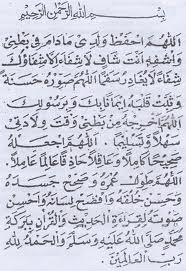 بِسْمِ اللهِ الرَّحْمٰنِ الرَّحِيْمِ
اَللّٰهُمَّ احْفَظْ وَلَدِىْ مَادَامَ فِىْ بَطْنِىْ
وَاشْفِهِ اَنْتَ شَافٍ لَاشِفَاءَ اِلَّاشِفَاؤُكَ
شِفَاءً لَايُغَادِرُ سَقَمًا اَللّٰهُمَّ صَوِّرْهُ حَسَنَةً
وَثَبِّتْ قَلْبَهُ اِيْمَانًابِكَ وَبِرَسُوْلِكَ
اَللّٰهُمَّ اَخْرِجْهُ مِنْ بَطْنِىْ وَقْتَ وِلَادَتِىْ
سَهْلًا وَتَسْلِيْمًا اَللّٰهُمَّ اجْعَلْهُ
صَحِيْحًاكَامِلًا وَعَاقِلًاحَاذِقًاعَالِمًاعَامِلًا
اَللّٰهُمَّ طَوِّلْ عُمُرَهُ وَصَحِّحْ جَسَدَهُ
وَحَسِّنْ خُلُقَهُ وَافْصَحْ لِسَانَهُ وَاَحْسِنْ
صَوْتَهُ لِقِرَاءَةِ الْحَدِيْثِ وَالْقُرْآنِ بِبَرَكَةِ
مُحَمَّدٍ صَلَّى اللهُ عَلَيْهِ وَسَلَّمَ وَالْحَمْدُ لِلّٰهِ
رَبِّ الْعَالَمِيْنَ